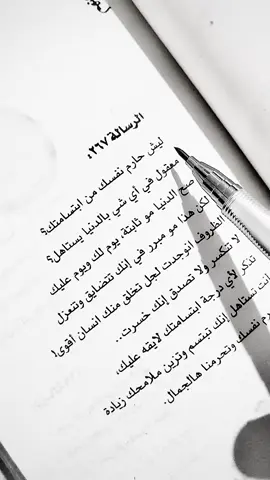 الرسالة ٢٦٧:
ليش حارم نفسك من ابتسامتك؟
معقول في أي شي بالدنيا يستاهل؟
صح الدنيا مو ثابتة يوم لك ويوم عليك
لكن هذا مو مبرر في إنك تتضايق وتنعزل
الظروف انوجدت لجل تخلق منك انسان أقوى!
لا تنكسر ولا تصدق إنك خسرت..
تذكر لأي درجة ابتسامتك لايقه عليك،
تستاهل إنك تبتسم وتزين ملامحك زيادة
نفسك وتحرمنا هالجمال.